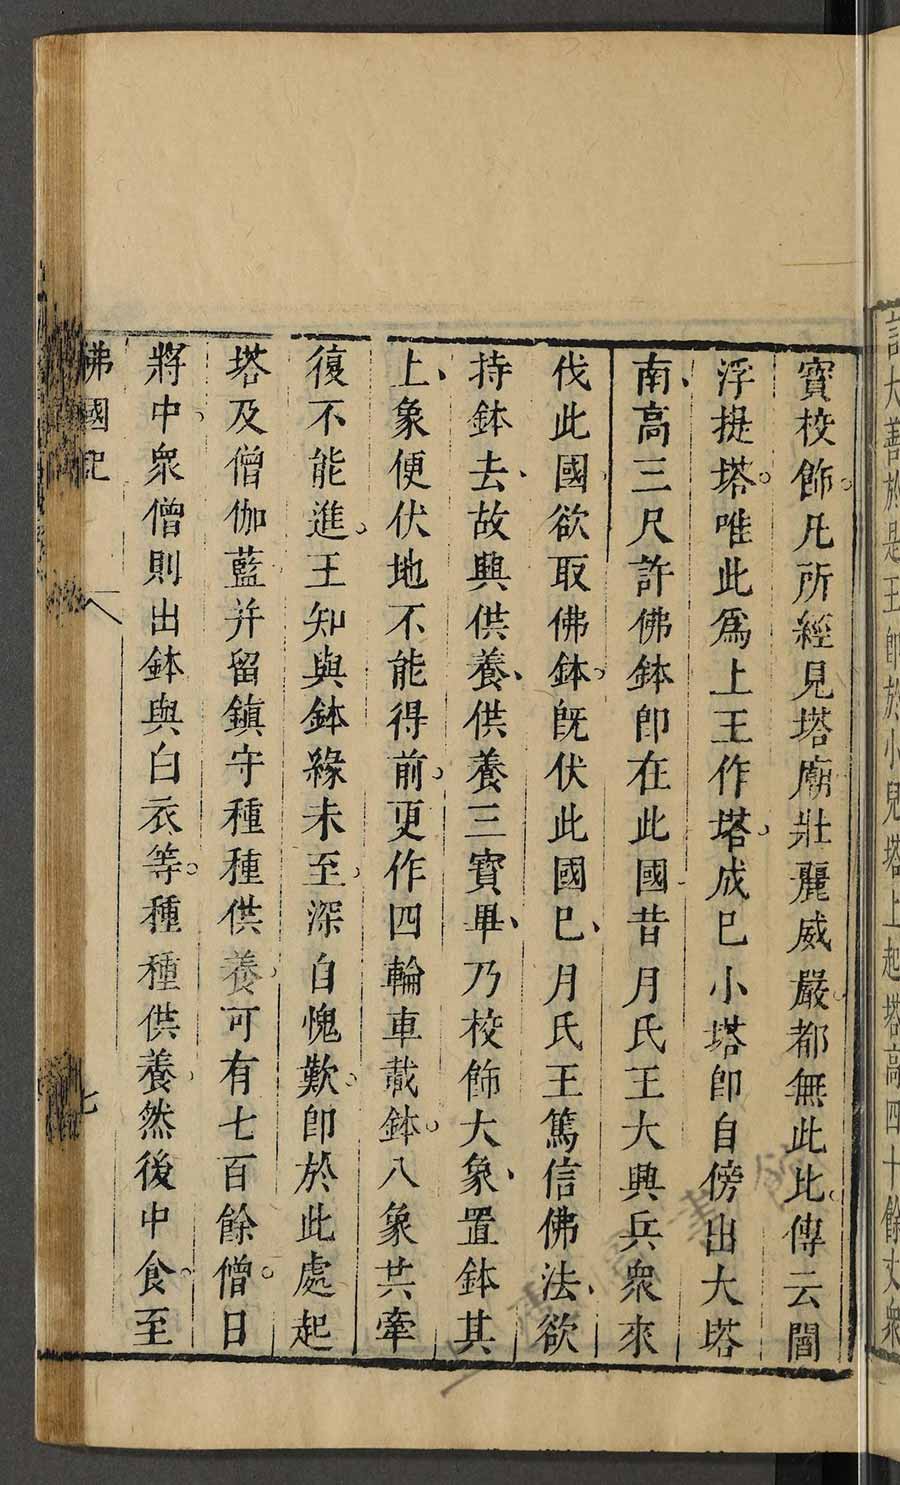 記大善於是王即於小兒塔上起塔高四十餘丈衆
寶校飾凡所經見塔廟壯麗威嚴都無此比傳云閻
浮提塔唯此爲上王作塔成已小塔即自傍出大塔
南高三尺許佛鉢即在此國昔月氏王大興兵衆來
伐此國欲取佛鉢旣伏此國已月氏王篤信佛法欲
持鉢去故興供養供養三寶畢乃校飾大象置鉢其
上象便伏地不能得前更作四輪車載鉢八象共牽
復不能進王知與鉢緣未至深自愧歎即於此處起
塔及僧伽藍并留鎮守種種供養可有七百餘僧日
將中衆僧則出鉢與白衣等種種供養然後中食至
佛國記
七